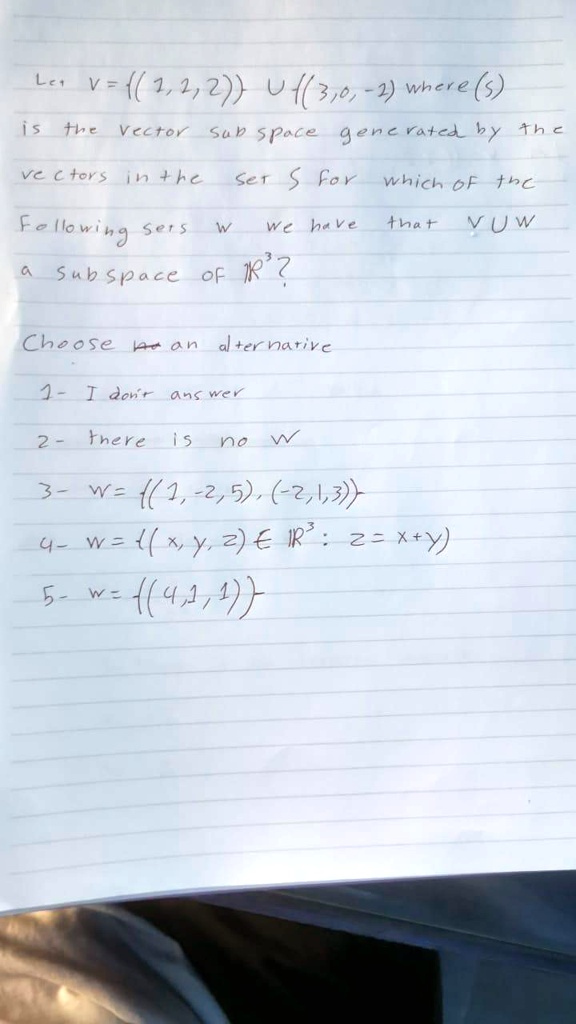 Let V = {(1,1,2)} ∪ {(3,0,-1) where (S)
is the vector sub space generated by the
vectors in the set S for which of the
Following sets W we have that V U W
a subspace of ℝ³?
Choose an alternative
1- I don't answer
2- there is no W
3- W = {(1,-2,5), (-2,1,3)}
4- W = {(x, y, z) ∈ ℝ³ : z = x+y)
5- W = {(4,1,1)}